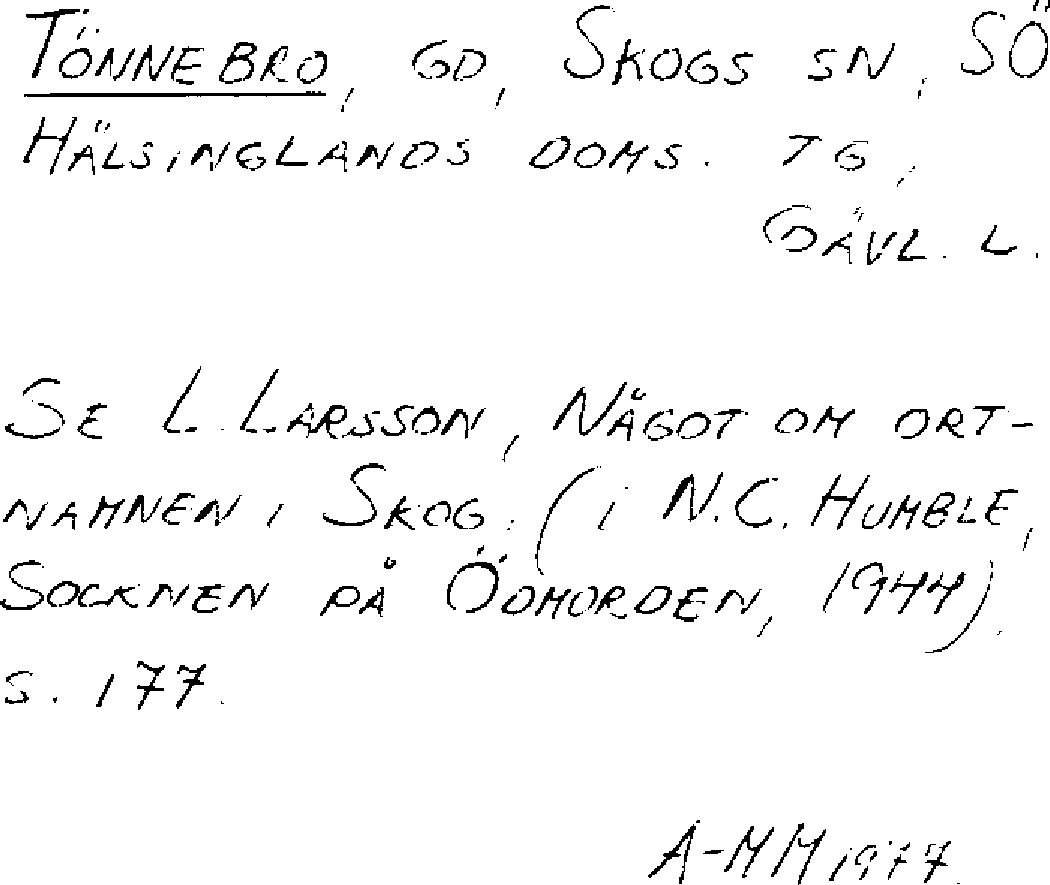 TÖNNEBRO, GD, SKOGS SN, SÖ
HÄLSINGLANDS DOMS. TG,
GÄVL. L.
SE L. LARSSON, NÅGOT OM ORT-
NAMNEN I SKOG. (I N.C. HUMBLE,
SOCKNEN PÅ ÖDMORDEN, 1944),
S. 177.
A-MM 1977.